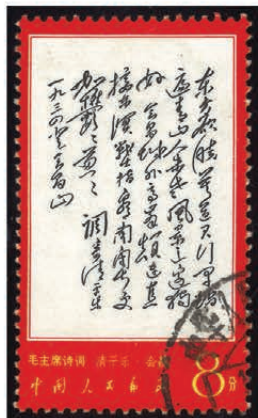 东方欲晓莫道君行早踏
遍青山人未老风景这边独
好 会昌城外高峰颠连直
接东溟战士指看南粤更
加郁々葱々 调寄清平乐
一九三四 登会昌山
毛主席诗词 清平乐·会昌
中国人民邮政 8分